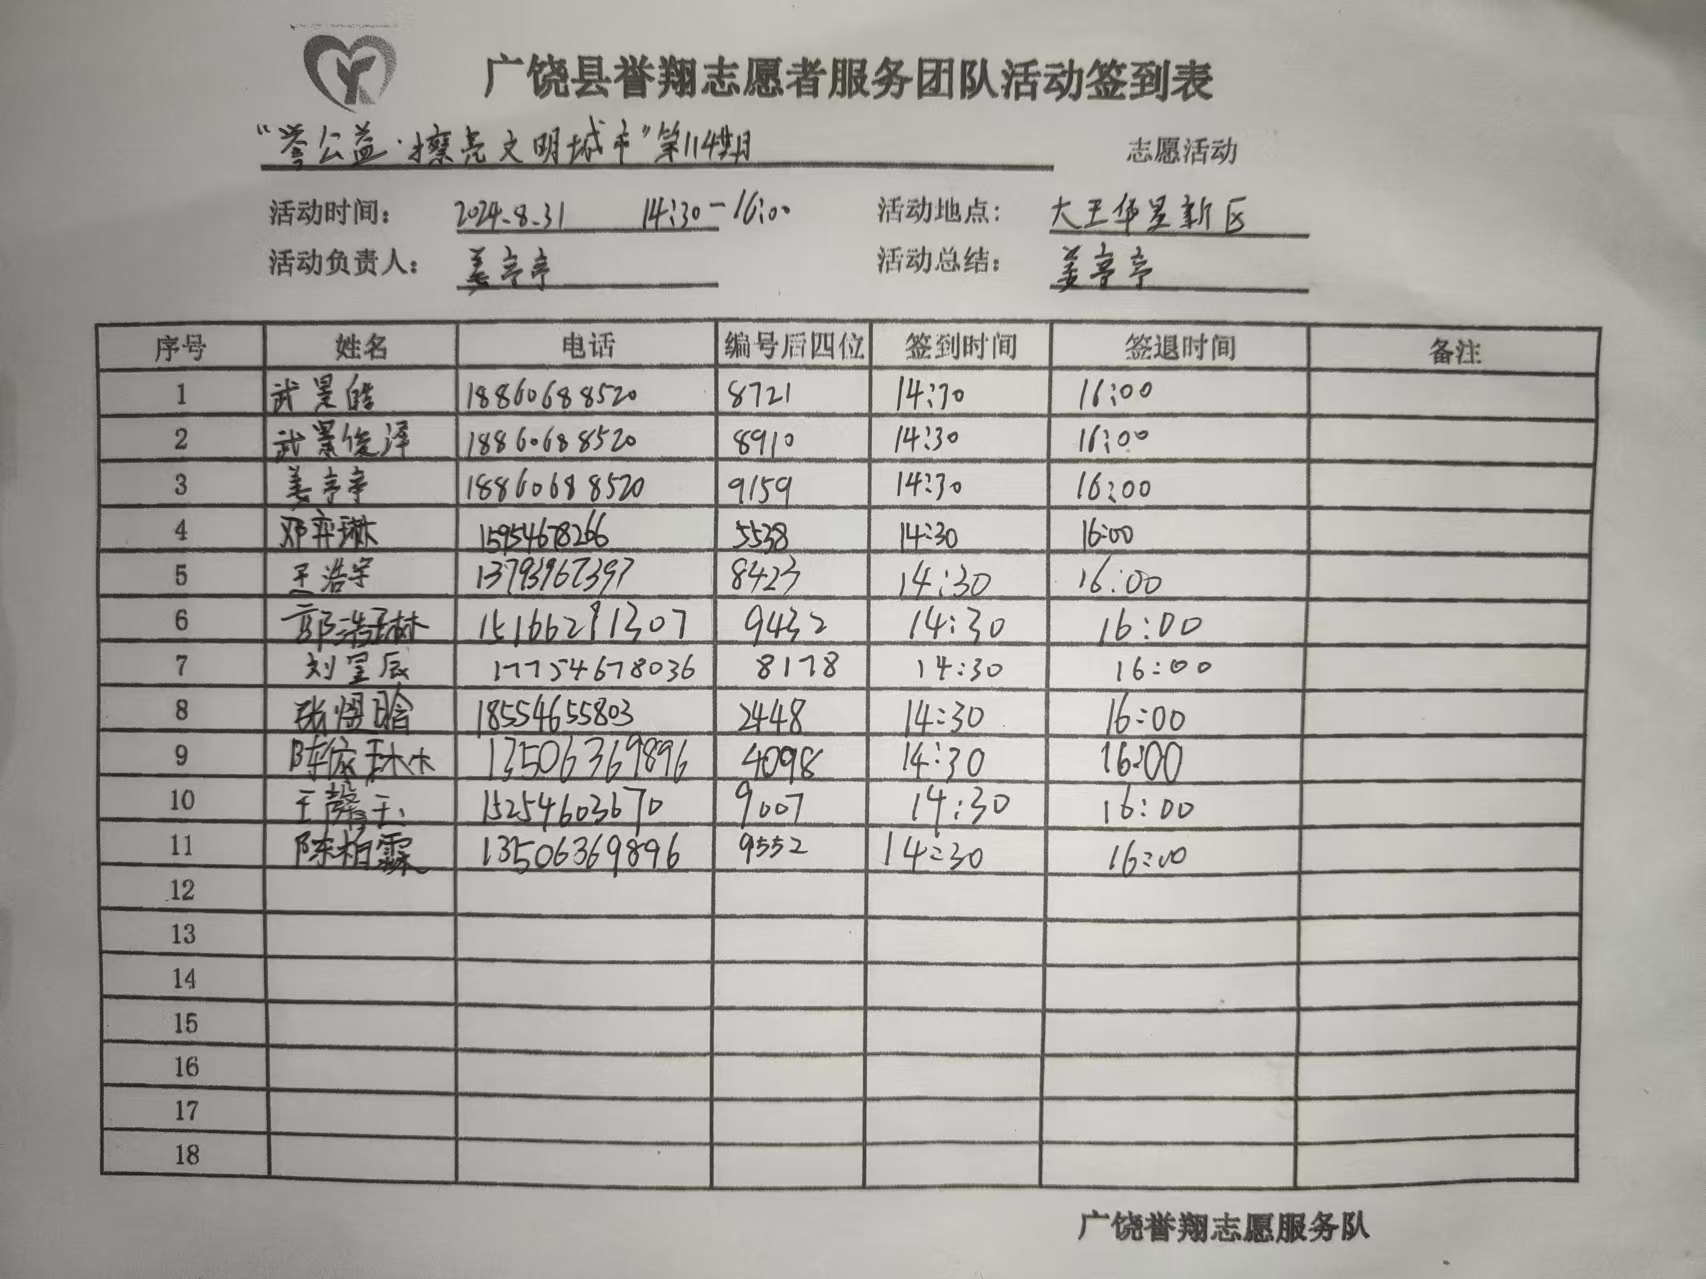 广饶县誉翔志愿者服务团队活动签到表
“誉公益·擦亮文明城市”第114期 志愿活动
活动时间： 2024.8.31 14:30-16:00 活动地点： 大王华星新区
活动负责人： 姜亭亭 活动总结： 姜亭亭
序号 姓名 电话 编号后四位 签到时间 签退时间 备注
1 武景皓 18860688520 8721 14:30 16:00
2 武景俊泽 18860688520 8910 14:30 16:00
3 姜亭亭 18860688520 9159 14:30 16:00
4 邓弈琳 15954678266 5538 14:30 16:00
5 王浩宇 13793967397 8423 14:30 16:00
6 郭浩琳 15166291307 9432 14:30 16:00
7 刘星辰 17754678036 8178 14:30 16:00
8 张煜晗 18554655803 2448 14:30 16:00
9 陈依琳 13506369896 4098 14:30 16:00
10 王馨玉 15254603670 9007 14:30 16:00
11 陈柏霖 13506369896 9552 14:30 16:00
12
13
14
15
16
17
18
广饶誉翔志愿服务队